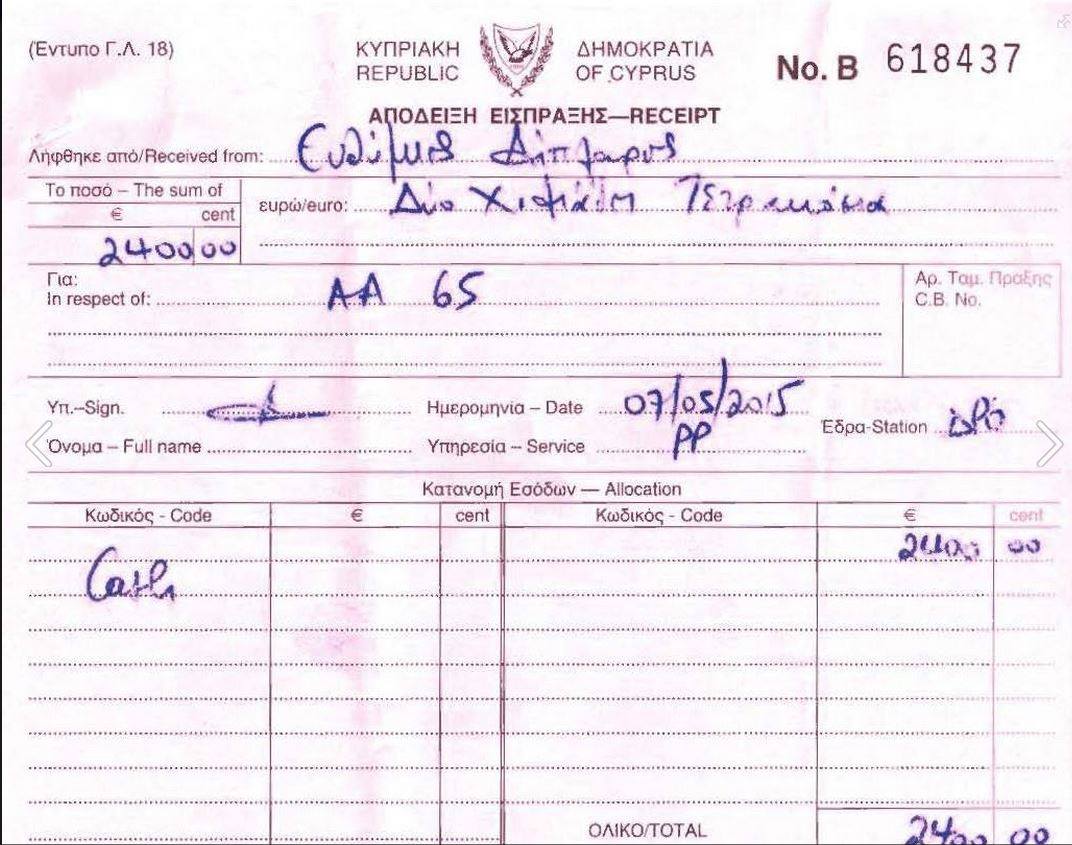 (Έντυπο Γ.Λ. 18)
ΚΥΠΡΙΑΚΗ ΔΗΜΟΚΡΑΤΙΑ
REPUBLIC OF CYPRUS
No. B 618437
ΑΠΟΔΕΙΞΗ ΕΙΣΠΡΑΞΗΣ—RECEIPT
Λήφθηκε από/Received from: Ευθύμιος Δίπλαρος
Το ποσό – The sum of
€ cent
2400 00
ευρώ/euro: Δύο Χιλιάδες Τετρακόσια
Για:
In respect of: AA 65
Αρ. Ταμ. Πράξης
C.B. No.
Υπ.–Sign.
Ημερομηνία – Date 07/05/2015
Έδρα-Station
Όνομα – Full name
Υπηρεσία – Service PP
Κατανομή Εσόδων — Allocation
Κωδικός - Code € cent Κωδικός - Code € cent
2400 00
Cash
ΟΛΙΚΟ/TOTAL 2400 00